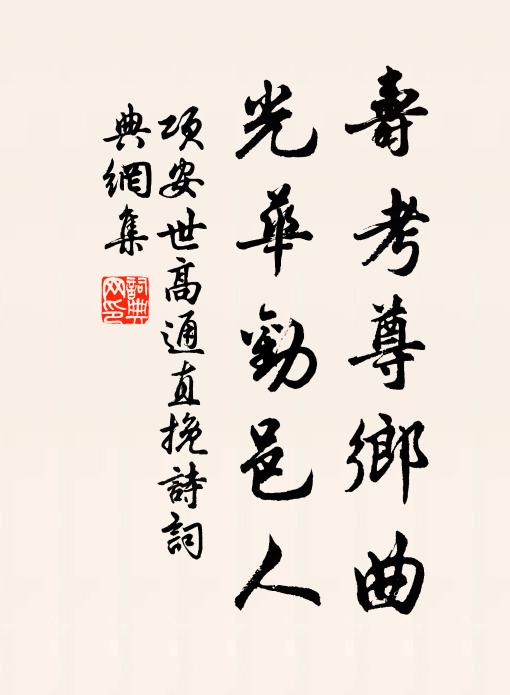 壽考尊鄉曲
光華勸邑人
項安世高通直挽詩詞
典網集
詞典
网印